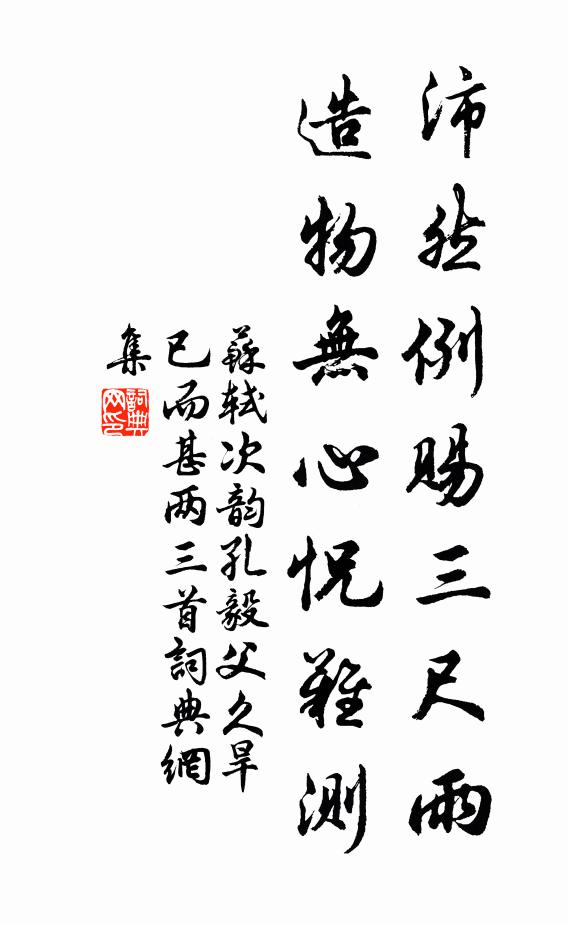 沛然例賜三尺雨
造物無心怳難測
蘇軾次韵孔毅父久旱
已而甚雨三首詞典網
集
詞典网印